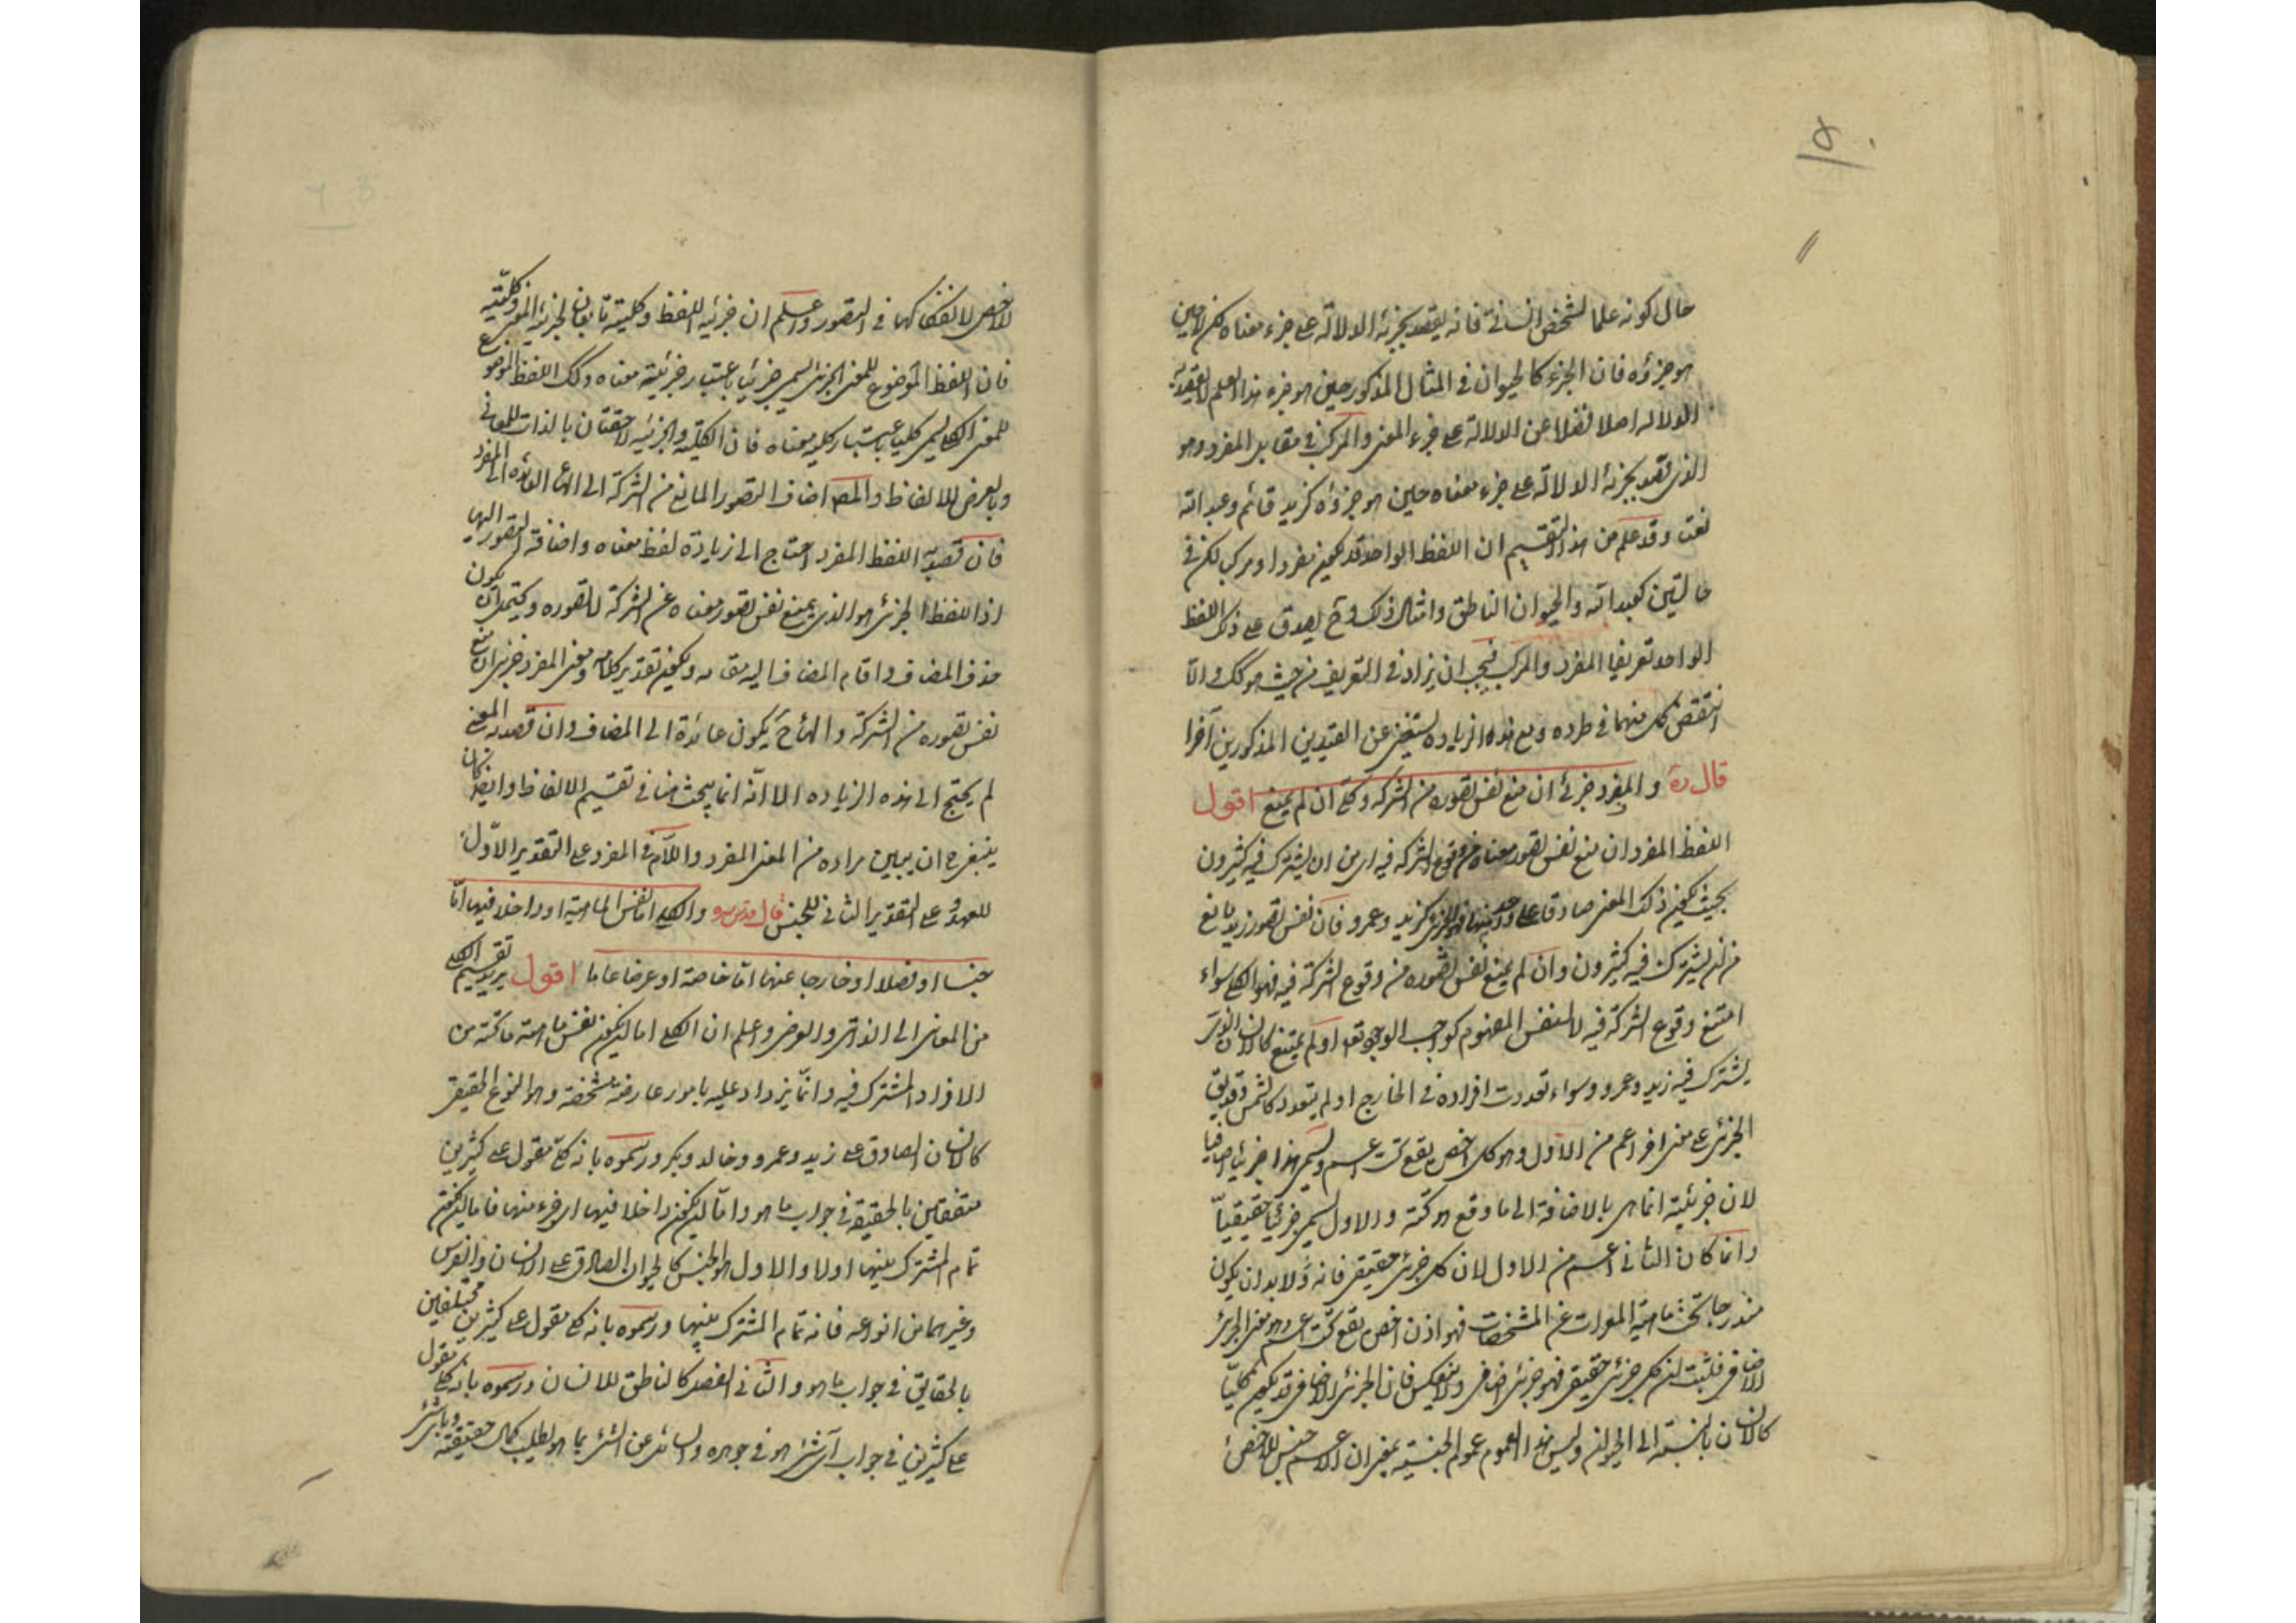 حال كونه علما لشخص انسانى فانه يقصد بجزئه الدلالة على جزء معناه لكن لا حين
هو جزؤه فان الجزء كالحيوان فى المثال المذكور حين هو جزء هذا العلم لا يقصد به
الدلالة اصلا فضلا عن الدلالة على جزء المعنى والمركب فى مقابل المفرد وهو
الذى يقصد بجزئه الدلالة على جزء معناه حين هو جزؤه كزيد قائم وعبد الله
نعت وقد علم من هذا التقسيم ان اللفظ الواحد قد يكون مفردا ومركبا لكن فى
حالتين كعبد الله والحيوان الناطق وامثال ذلك وح يصدق على ذلك اللفظ
الواحد تعريفا المفرد والمركب فيجب ان يزاد فى التعريف من حيث هو كك والا
انتقض كل منهما فى طرده ومع هذه الزيادة يستغنى عن القيدين المذكورين آخرا
قال ره والمفرد جزئى ان منع نفس تصوره من الشركة وكلى ان لم يمنع اقول
اللفظ المفرد ان منع نفس تصور معناه من وقوع الشركة فيه اى من ان يشترك فيه كثيرون
بحيث يكون ذلك المعنى صادقا على كل واحد منها فهو الجزئى كزيد وعمرو فان نفس تصور زيد مانع
من ان يشترك فيه كثيرون وان لم يمنع نفس تصوره من وقوع الشركة فيه فهو الكلى سواء
امتنع وقوع الشركة فيه لا لنفس المفهوم كواجب الوجود تعه او لم يمتنع كالانسان الذى
يشترك فيه زيد وعمرو وسواء تعددت افراده فى الخارج او لم يتعدد كالشمس وقد يق
الجزئى على معنى اخر اعم من الاول وهو كل اخص يقع تحت اعم ويسمى هذا جزئيا اضافيا
لان جزئيته انما هى بالاضافة الى ما وقع هو تحته والاول يسمى جزئيا حقيقيا
وانما كان الثانى اعم من الاول لان كل جزئى حقيقى فانه ولابد ان يكون
مندرجا تحت ماهيته المعراة عن المشخصات فهو اذن اخص يقع تحت اعم وهو معنى الجزئى
الاضافى فثبت ان كل جزئى حقيقى فهو جزئى اضافى ولا ينعكس فان الجزئى الاضافى قد يكون كليا
كالانسان بالنسبة الى الحيوان وليس هذا العموم عموم الجنسية بمعنى ان الاعم جنس للاخص
للاخص لانفكاكهما فى التصور واعلم ان جزئية اللفظ وكليته تابعان لجزئية المعنى وكليته
فان اللفظ الموضوع للمعنى الجزئى يسمى جزئيا باعتبار جزئية معناه وكك اللفظ الموضوع
للمعنى الكلى يسمى كليا باعتبار كلية معناه فان الكلية والجزئية لاحقتان بالذات للمعانى
وبالعرض للالفاظ والمصـ اضاف التصور المانع من الشركة الى الهاء العائدة الى المفرد
فان قصد به اللفظ المفرد احتاج الى زيادة لفظ معناه واضافة التصور اليها
اذ اللفظ الجزئى هو الذى يمنع نفس تصور معناه عن الشركة لا تصوره ويحتمل ان يكون
حذف المضاف واقام المضاف اليه مقامه ويكون تقدير كلامه ومعنى المفرد جزئى ان منع
نفس تصوره من الشركة والهاء ح يكون عائدة الى المضاف وان قصد به المعنى
لم يحتج الى هذه الزيادة الا انه انما يبحث هنا فى تقسيم الالفاظ وايضا كان
ينبغى ان يبين مراده من المعنى المفرد واللام فى المفرد على التقدير الاول
للعهد وعلى التقدير الثانى للجنس قال قدس سره والكلى اما نفس الماهية او داخلا فيها اما
جنسا او فصلا او خارجا عنها اما خاصة او عرضا عاما اقول يريد تقسيم الكلى
من المعانى الى الذاتى والعرضى واعلم ان الكلى اما ان يكون نفس ماهية ما تحته من
الافراد المشترك فيه وانما يزداد عليه بامور عارضة مشخصة وهو النوع الحقيقى
كالانسان الصادق على زيد وعمرو وخالد وبكر ورسموه بانه كلى مقول على كثيرين
متفقين بالحقيقة فى جواب ما هو واما ان يكون داخلا فيها اى جزء منها فاما ان يكون
تمام المشترك بينهما اولا والاول هو الجنس كالحيوان الصادق على الانسان والفرس
وغيرهما من انواعه فانه تمام المشترك بينها ورسموه بانه كلى مقول على كثيرين مختلفين
بالحقايق فى جواب ما هو والثانى الفصل كالناطق للانسان ورسموه بانه كلى مقول
على كثيرين فى جواب اى شىء هو فى جوهره والسائل عن الشىء بما هو يطلب كمال حقيقته وباى شىء